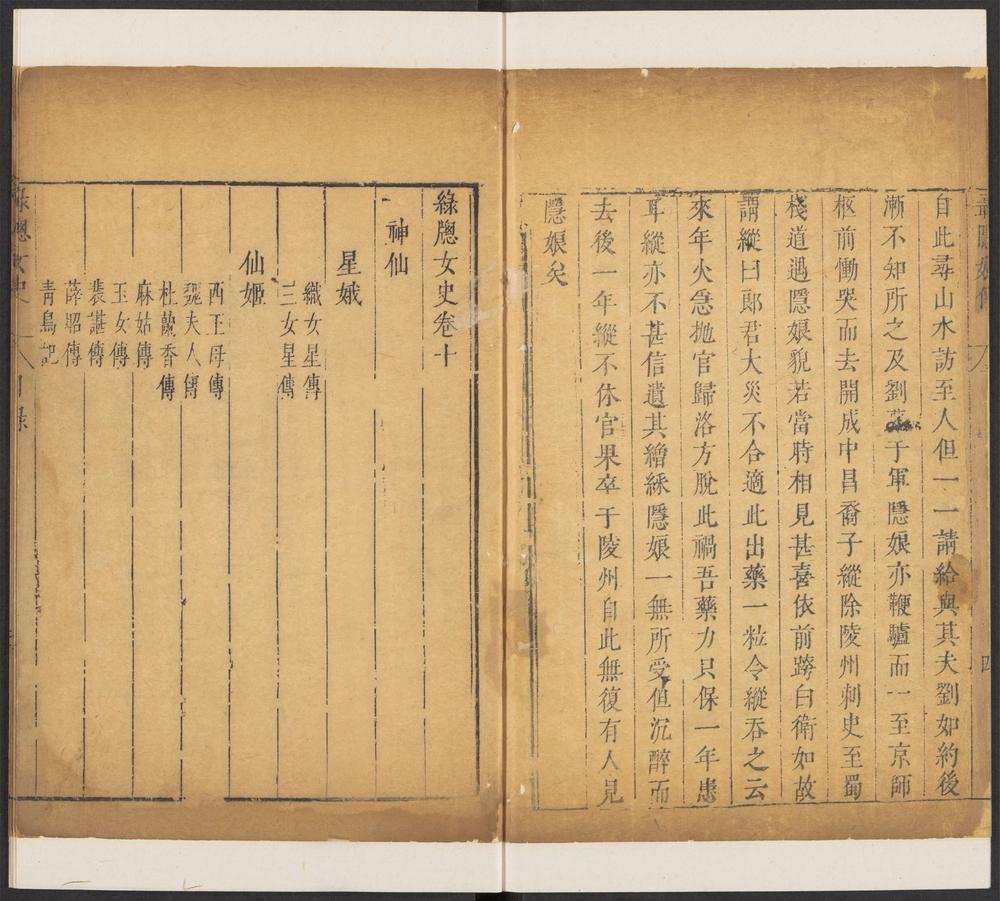 自此尋山水訪至人但一一請給與其夫劉如約後
漸不知所之及劉薨于軍隱娘亦鞭驢而一至京師
柩前慟哭而去開成中昌裔子縱除陵州刺史至蜀
棧道遇隱娘貌若當時相見甚喜依前跨白衛如故
謂縱曰郎君大災不合適此出藥一粒令縱吞之云
來年火急抛官歸洛方脫此禍吾藥力只保一年患
耳縱亦不甚信遺其繒綵隱娘一無所受但沉醉而
去後一年縱不休官果卒于陵州自此無復有人見
隱娘矣
綠牕女史卷十
神仙
星娥
織女星傳
三女星傳
仙姬
西王母傳
魏夫人傳
杜蘭香傳
麻姑傳
玉女傳
裴諶傳
薛昭傳
青鳥記